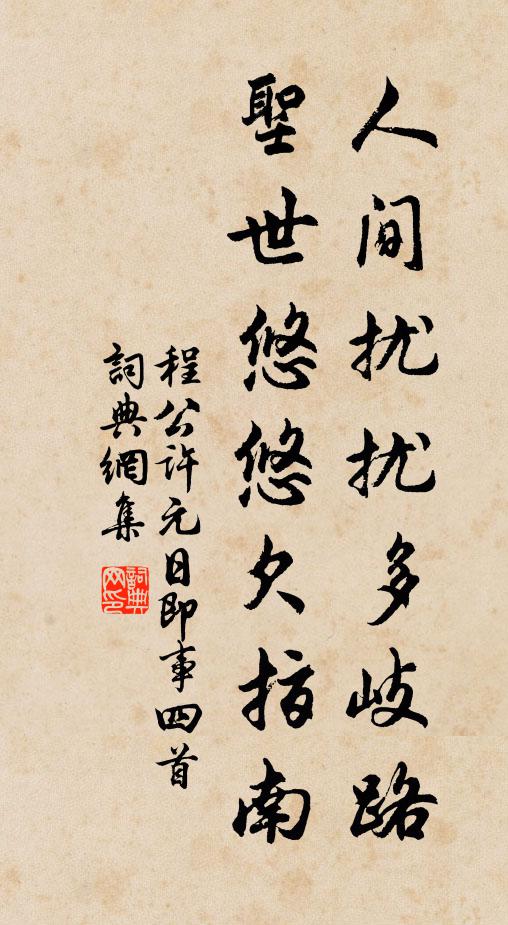 人间扰扰多岐路
聖世悠悠欠指南
程公许元日即事四首
詞典網集
詞典网印